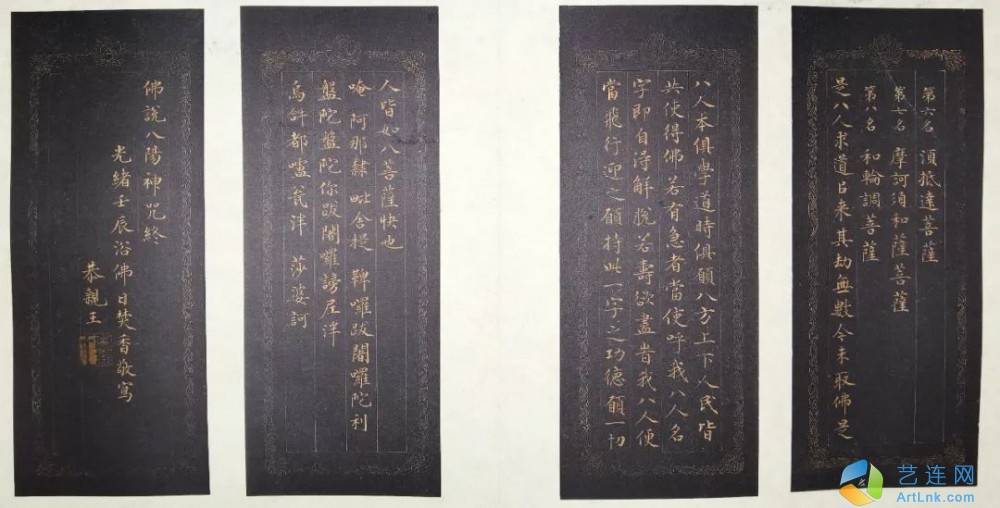 第六名 須抵達菩薩
第七名 摩訶須和薩菩薩
第八名 和輪調菩薩
是八人求道已来其劫無數今未取佛是
八人本俱學道時俱願八方上下人民皆
共使得佛若有急者當使呼我八人名
字即自得解脫若壽欲盡者我八人便
當飛行迎之願持此一字之功德願一切
人皆如八菩薩快也
唵 阿那隸 毗舍提 鞞囉跋闍囉陀利
盤陀盤陀你跋闍囉謗尼泮
烏𤙖都嚧瓮泮 莎婆訶
佛說八陽神咒終
光緒壬辰浴佛日焚香敬寫
恭親王
艺连网
ArtLnk.com